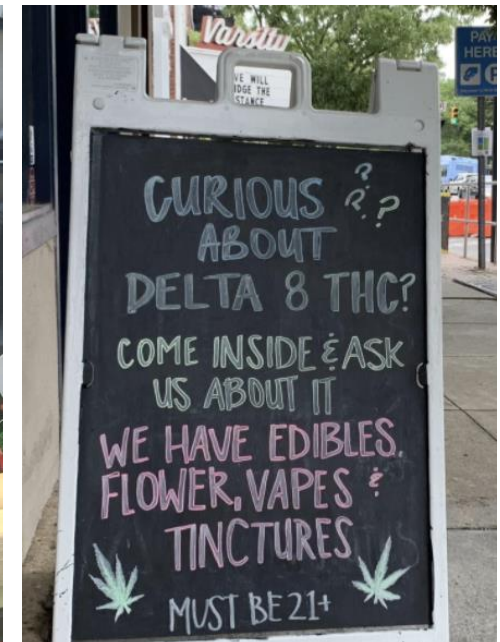 Varsity
WE WILL
BRIDGE THE
DISTANCE
PAY
HERE
P
CURIOUS ???
ABOUT
DELTA 8 THC?
COME INSIDE & ASK
US ABOUT IT
WE HAVE EDIBLES,
FLOWER, VAPES &
TINCTURES
MUST BE 21+